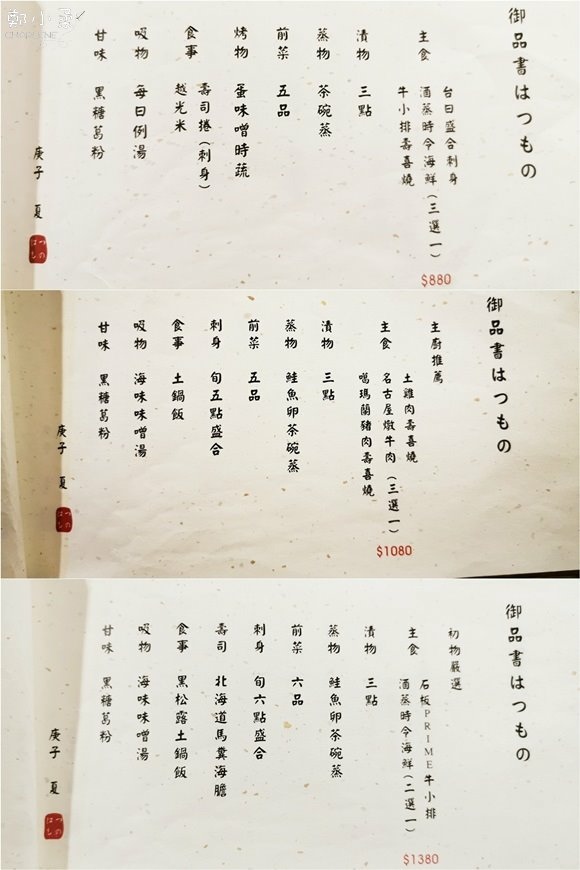 鄭小柔
CHARLENE
御品書はつもの
台日盛合刺身
主食 酒蒸時令海鮮(三選一)
牛小排壽喜燒
$880
漬物 三點
蒸物 茶碗蒸
前菜 五品
烤物 蛋味噌時蔬
食事 壽司捲(刺身)
越光米
吸物 每日例湯
甘味 黑糖葛粉
庚子 夏
はつもの
御品書はつもの
主廚推薦
土雞肉壽喜燒
主食 名古屋燉牛肉(三選一)
噶瑪蘭豬肉壽喜燒
$1080
漬物 三點
蒸物 鮭魚卵茶碗蒸
前菜 五品
刺身 旬五點盛合
食事 土鍋飯
吸物 海味味噌湯
甘味 黑糖葛粉
庚子 夏
はつもの
御品書はつもの
初物嚴選
石板PRIME牛小排
主食 酒蒸時令海鮮(二選一)
$1380
漬物 三點
蒸物 鮭魚卵茶碗蒸
前菜 六品
刺身 旬六點盛合
壽司 北海道馬糞海膽
食事 黑松露土鍋飯
吸物 海味味噌湯
甘味 黑糖葛粉
庚子 夏
はつもの